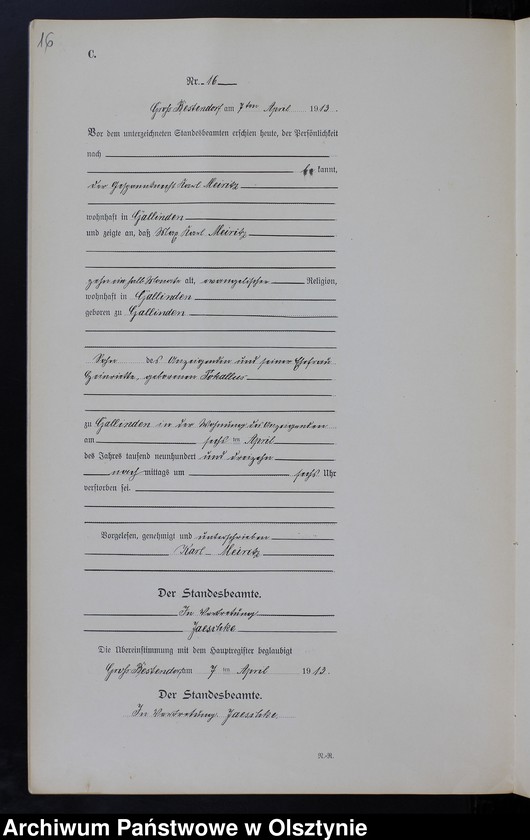 16
C.
Nr. 16
Groß Bestendorf am 7ten April 1913.
Vor dem unterzeichneten Standesbeamten erschien heute, der Persönlichkeit
nach
be kannt,
der Gespannknecht Karl Meiritz
wohnhaft in Gallinden
und zeigte an, daß Max Karl Meiritz
zehn ein halb Monate alt, evangelischer Religion,
wohnhaft in Gallinden
geboren zu Gallinden
Sohn des Anzeigenden und seiner Ehefrau
Henriette, geborenen
zu Gallinden in der Wohnung des Anzeigenden
am sechs ten April
des Jahres tausend neunhundert und dreizehn
nach mittags um sechs Uhr
verstorben sei.
Vorgelesen, genehmigt und unterschrieben
Karl Meiritz
Der Standesbeamte.
In Vertretung
Jaeschke
Die Übereinstimmung mit dem Hauptregister beglaubigt
Groß Bestendorf am 7 ten April 1913.
Der Standesbeamte.
In Vertretung Jaeschke
N.-R.
Archiwum Państwowe w Olsztynie